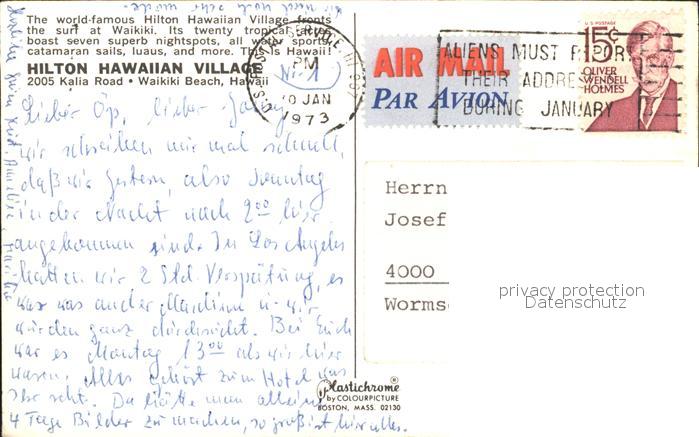 The world-famous Hilton Hawaiian Village fronts
the surf at Waikiki. Its twenty tropical acres
boast seven superb nightspots, all water sports,
catamaran sails, luaus, and more. This is Hawaii!
HILTON HAWAIIAN VILLAGE
2005 Kalia Road • Waikiki Beach, Hawaii
Nr. 1
PM
10 JAN
1973
AIR MAIL
PAR AVION
ALIENS MUST REPORT
THEIR ADDRESS
DURING JANUARY
U.S. POSTAGE
15¢
OLIVER
WENDELL
HOLMES
Lieber Op, lieber
wir schreiben nur mal schnell,
daß wir gestern, also Sonntag
in der Nacht nach 2⁰⁰ hier
angekommen sind. In Los Angeles
hatten wir 2 Std. Verspätung, es
war was an der Maschine u. wir
wurden ganz durchsucht. Bei Euch
war es Montag 13⁰⁰ als wir hier
waren. Alles gehört zum Hotel was
Ihr seht. Da hätte man allein
4 Tage Bilder zu machen, so groß ist hier alles.
Herrn
Josef
4000
Worms
privacy protection
Datenschutz
Plastichrome®
by COLOURPICTURE
BOSTON, MASS. 02130